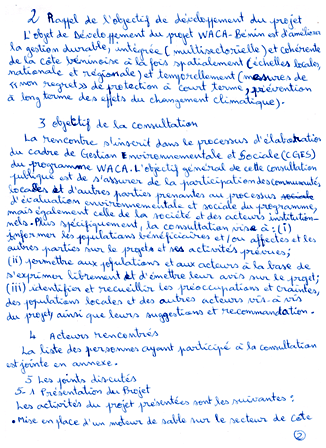 2 Rappel de l'objectif de développement du projet
L'objet de Développement du projet WACA-Bénin est d'améliorer
la gestion durable, intégrée (multisectorielle) et cohérente
de la côte béninoise à la fois spatialement (échelles locales,
nationale et régionale) et temporellement (mesures de
"non regrets" de protection à court terme, prévention
à long terme des effets du changement climatique).
3 objectif de la consultation
La rencontre s'inscrit dans le processus d'élaboration
du cadre de Gestion Environnementale et Sociale (CGES)
du programme WACA. L'objectif général de cette consultation
publique est de s'assurer de la participation des communautés
locales et d'autres parties prenantes au processus
d'évaluation environnementale et sociale du programme,
mais également celle de la société et des acteurs institution-
nels. Plus spécifiquement, la consultation vise à : (i)
informer les populations bénéficiaires et/ou affectés et les
autres parties sur le projet et ses activités prévues;
(ii) permettre aux populations et aux acteurs à la base de
s'exprimer librement et d'émettre leurs avis sur le projet;
(iii) identifier et recueillir les préoccupations et craintes,
des populations locales et des autres acteurs vis à vis
du projet, ainsi que leurs suggestions et recommandation.
4 Acteurs rencontrés
La liste des personnes ayant participé à la consultation
est jointe en annexe.
5 Les points discutés
5.1 Présentation du Projet
Les activités du projet présentées sont les suivantes:
• Mise en place d'un moteur de sable sur le secteur de côte
2